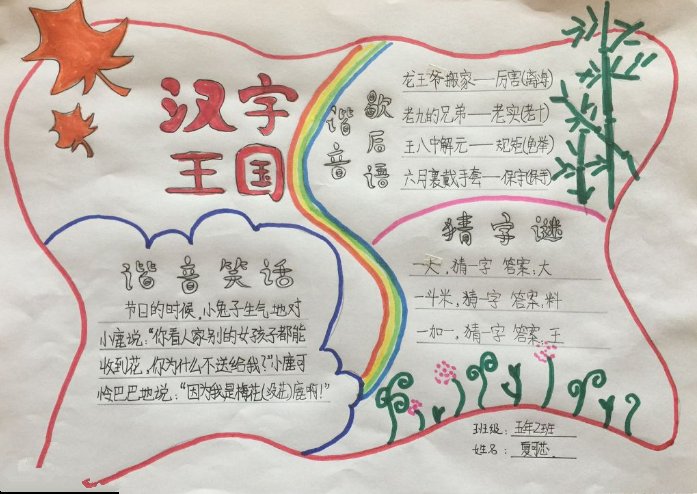 汉字
王国
谐音
歇后语
龙王爷搬家——厉害(离海)
老九的兄弟——老实(老十)
王八中解元——规矩(龟举)
六月裹戴手套——保守(保手)
猜字谜
一天,猜一字 答案:大
一斗米,猜一字 答案:料
一加一,猜一字 答案:王
谐音笑话
节日的时候,小兔子生气地对
小鹿说:“你看人家别的女孩子都能
收到花,你为什么不送给我?”小鹿可
怜巴巴地说:“因为我是梅花(没花)鹿啊!”
班级:五年2班
姓名: